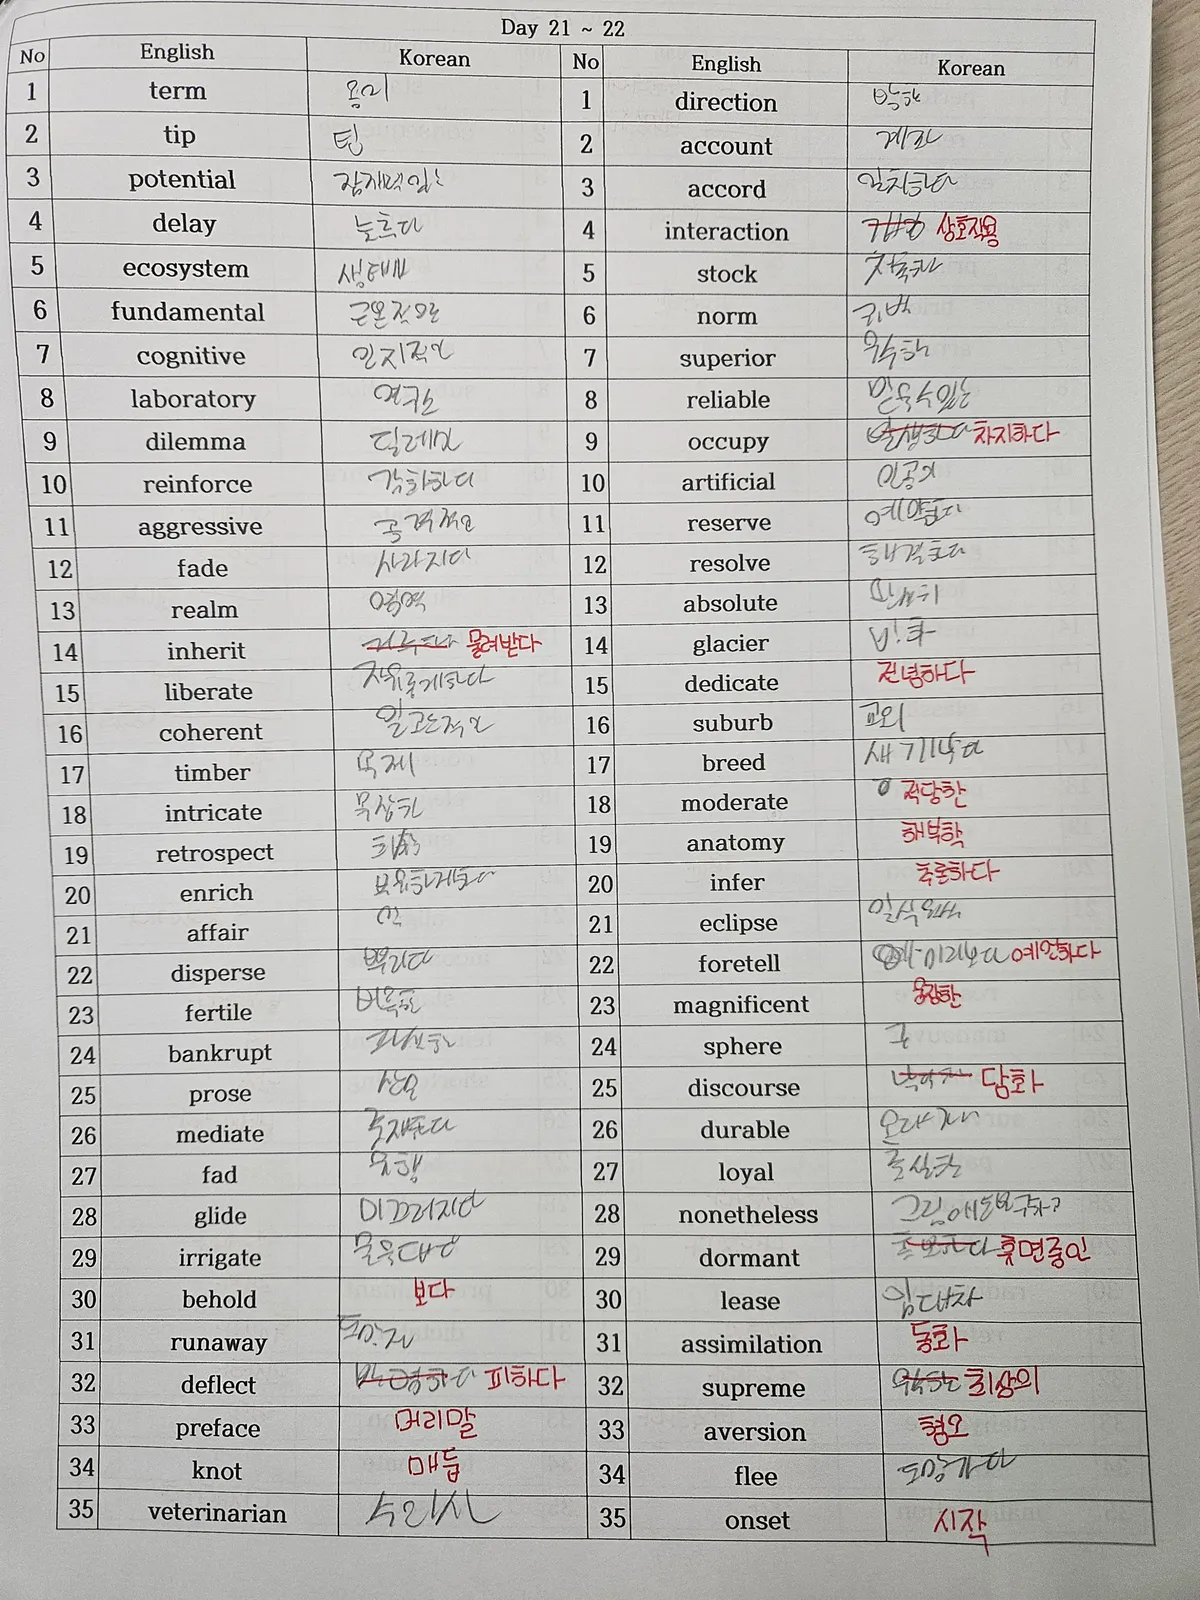 Day 21 ~ 22
No English Korean No English Korean
1 term 용어 1 direction 방향
2 tip 팁 2 account 계좌
3 potential 잠재력있는 3 accord 일치하다
4 delay 늦추다 4 interaction 상호작용
5 ecosystem 생태계 5 stock
6 fundamental 근본적으로 6 norm 규범
7 cognitive 인지적인 7 superior 우수한
8 laboratory 연구소 8 reliable 믿을수있는
9 dilemma 딜레마 9 occupy 발생하다 차지하다
10 reinforce 강화하다 10 artificial 인공적
11 aggressive 공격적인 11 reserve 예약하다
12 fade 사라지다 12 resolve 해결하다
13 realm 영역 13 absolute
14 inherit 물려받다 14 glacier 빙하
15 liberate 자유롭게하다 15 dedicate 전념하다
16 coherent 일관적인 16 suburb 교외
17 timber 목재 17 breed 새끼낳다
18 intricate 복잡한 18 moderate 적당한
19 retrospect 회상 19 anatomy 해부학
20 enrich 부유하게하다 20 infer 추론하다
21 affair 일 21 eclipse
22 disperse 뿌리다 22 foretell 미리보다 예언하다
23 fertile 비옥한 23 magnificent 웅장한
24 bankrupt 파산한 24 sphere 구
25 prose 산문 25 discourse 담화
26 mediate 중재하다 26 durable
27 fad 유행 27 loyal 충실한
28 glide 미끄러지다 28 nonetheless 그럼에도불구하고
29 irrigate 물을대다 29 dormant 휴면중인
30 behold 보다 30 lease 임대차
31 runaway 도망자 31 assimilation 동화
32 deflect 반영하다 피하다 32 supreme 우수한 최상의
33 preface 머리말 33 aversion 혐오
34 knot 매듭 34 flee 도망가다
35 veterinarian 수의사 35 onset 시작